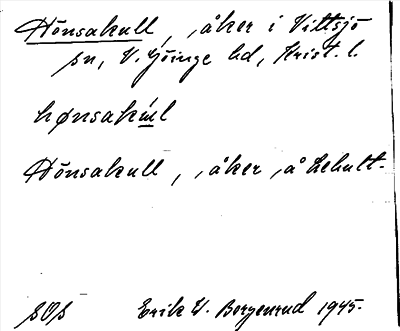 Hönsakull, åker i Vittsjö
sn, V. Göinge hd, Krist. l.
hønsakul
Hönsakull, åker å Lehult.
SOS Erik W. Borgenrud 1945.